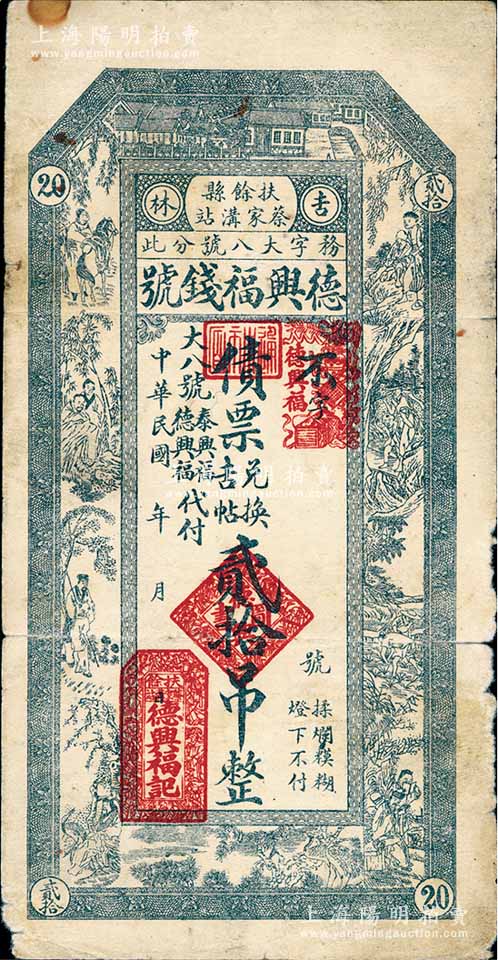 上海陽明拍賣
www.yangmingauction.com
20
貳拾
吉林
扶餘縣
蔡家溝站
務字大八號分此
德興福錢號
不字
德興福
債票兌換吉帖貳拾吊整
大八號泰興福德興福代付
中華民國 年 月
號
揉爛糢糊
燈下不付
德興福記
上海陽明拍賣
www.yangmingauction.com
貳拾
20
上海陽明拍賣
www.yangmingauction.com